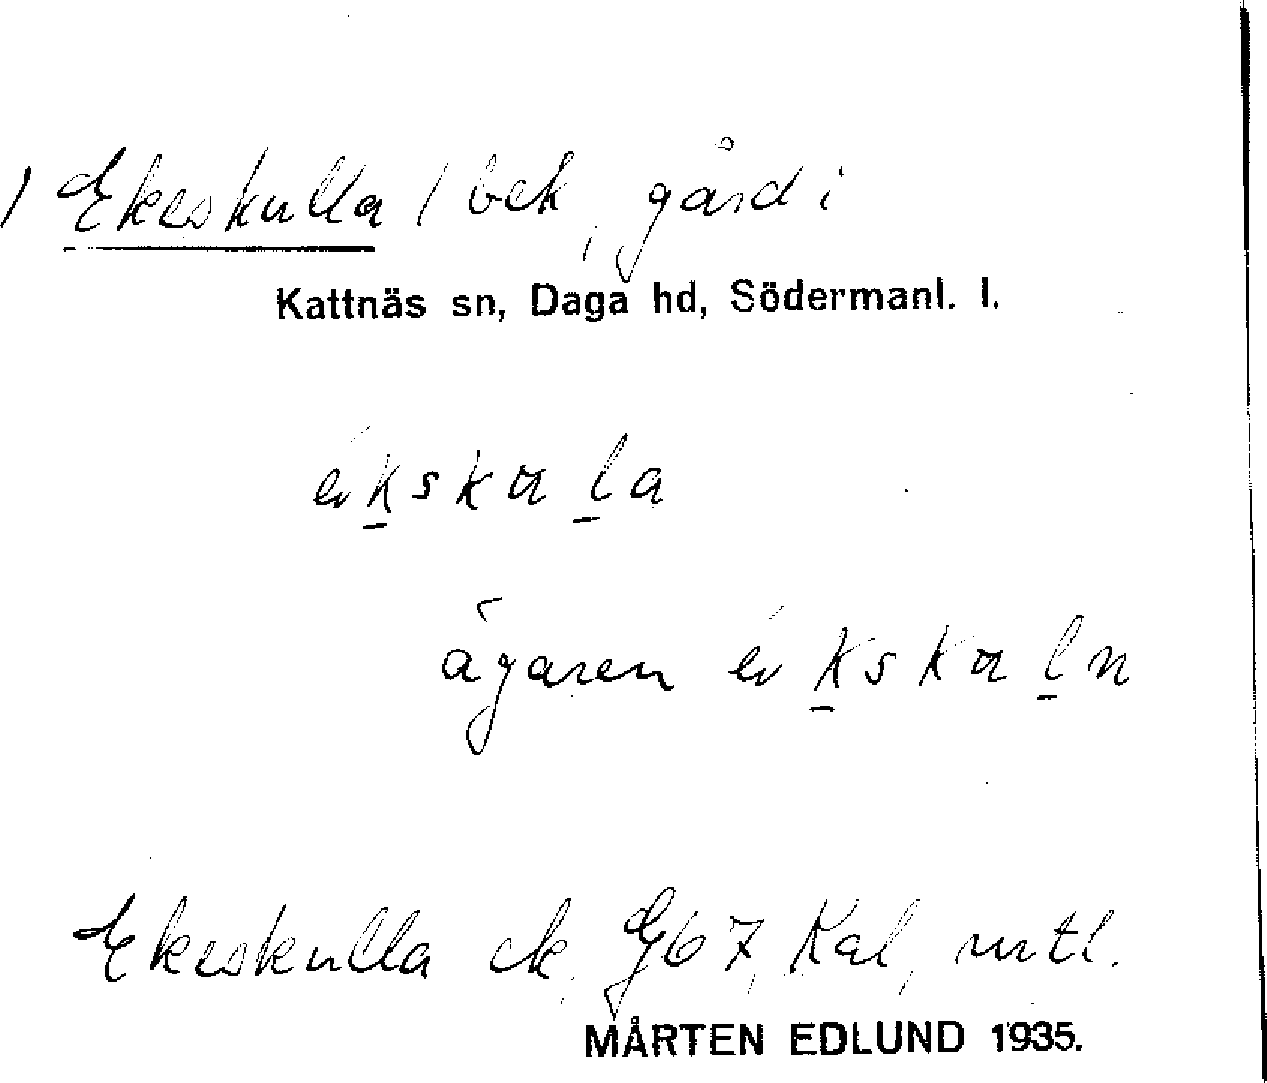 / Ekeskulla / bek, gård i
Kattnäs sn, Daga hd, Södermanl. l.
ékskala
ägaren ékskaln
Ekeskulla ek, Gb 7, Kal, mtl.
MÅRTEN EDLUND 1935.